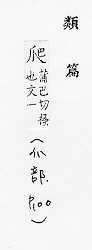 類篇
爬 蒲巴切搔
也文一
(爪部, P.100)